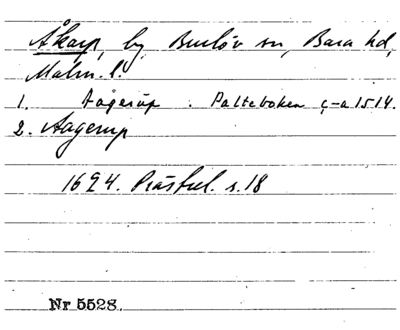 Åkarp, by Burlöv sn, Bara hd,
Malm. l.
1. Aagerup . Palteboken c-a 1514.
2. Aagerup
1694. Prästrel. s. 18
Nr 5528.